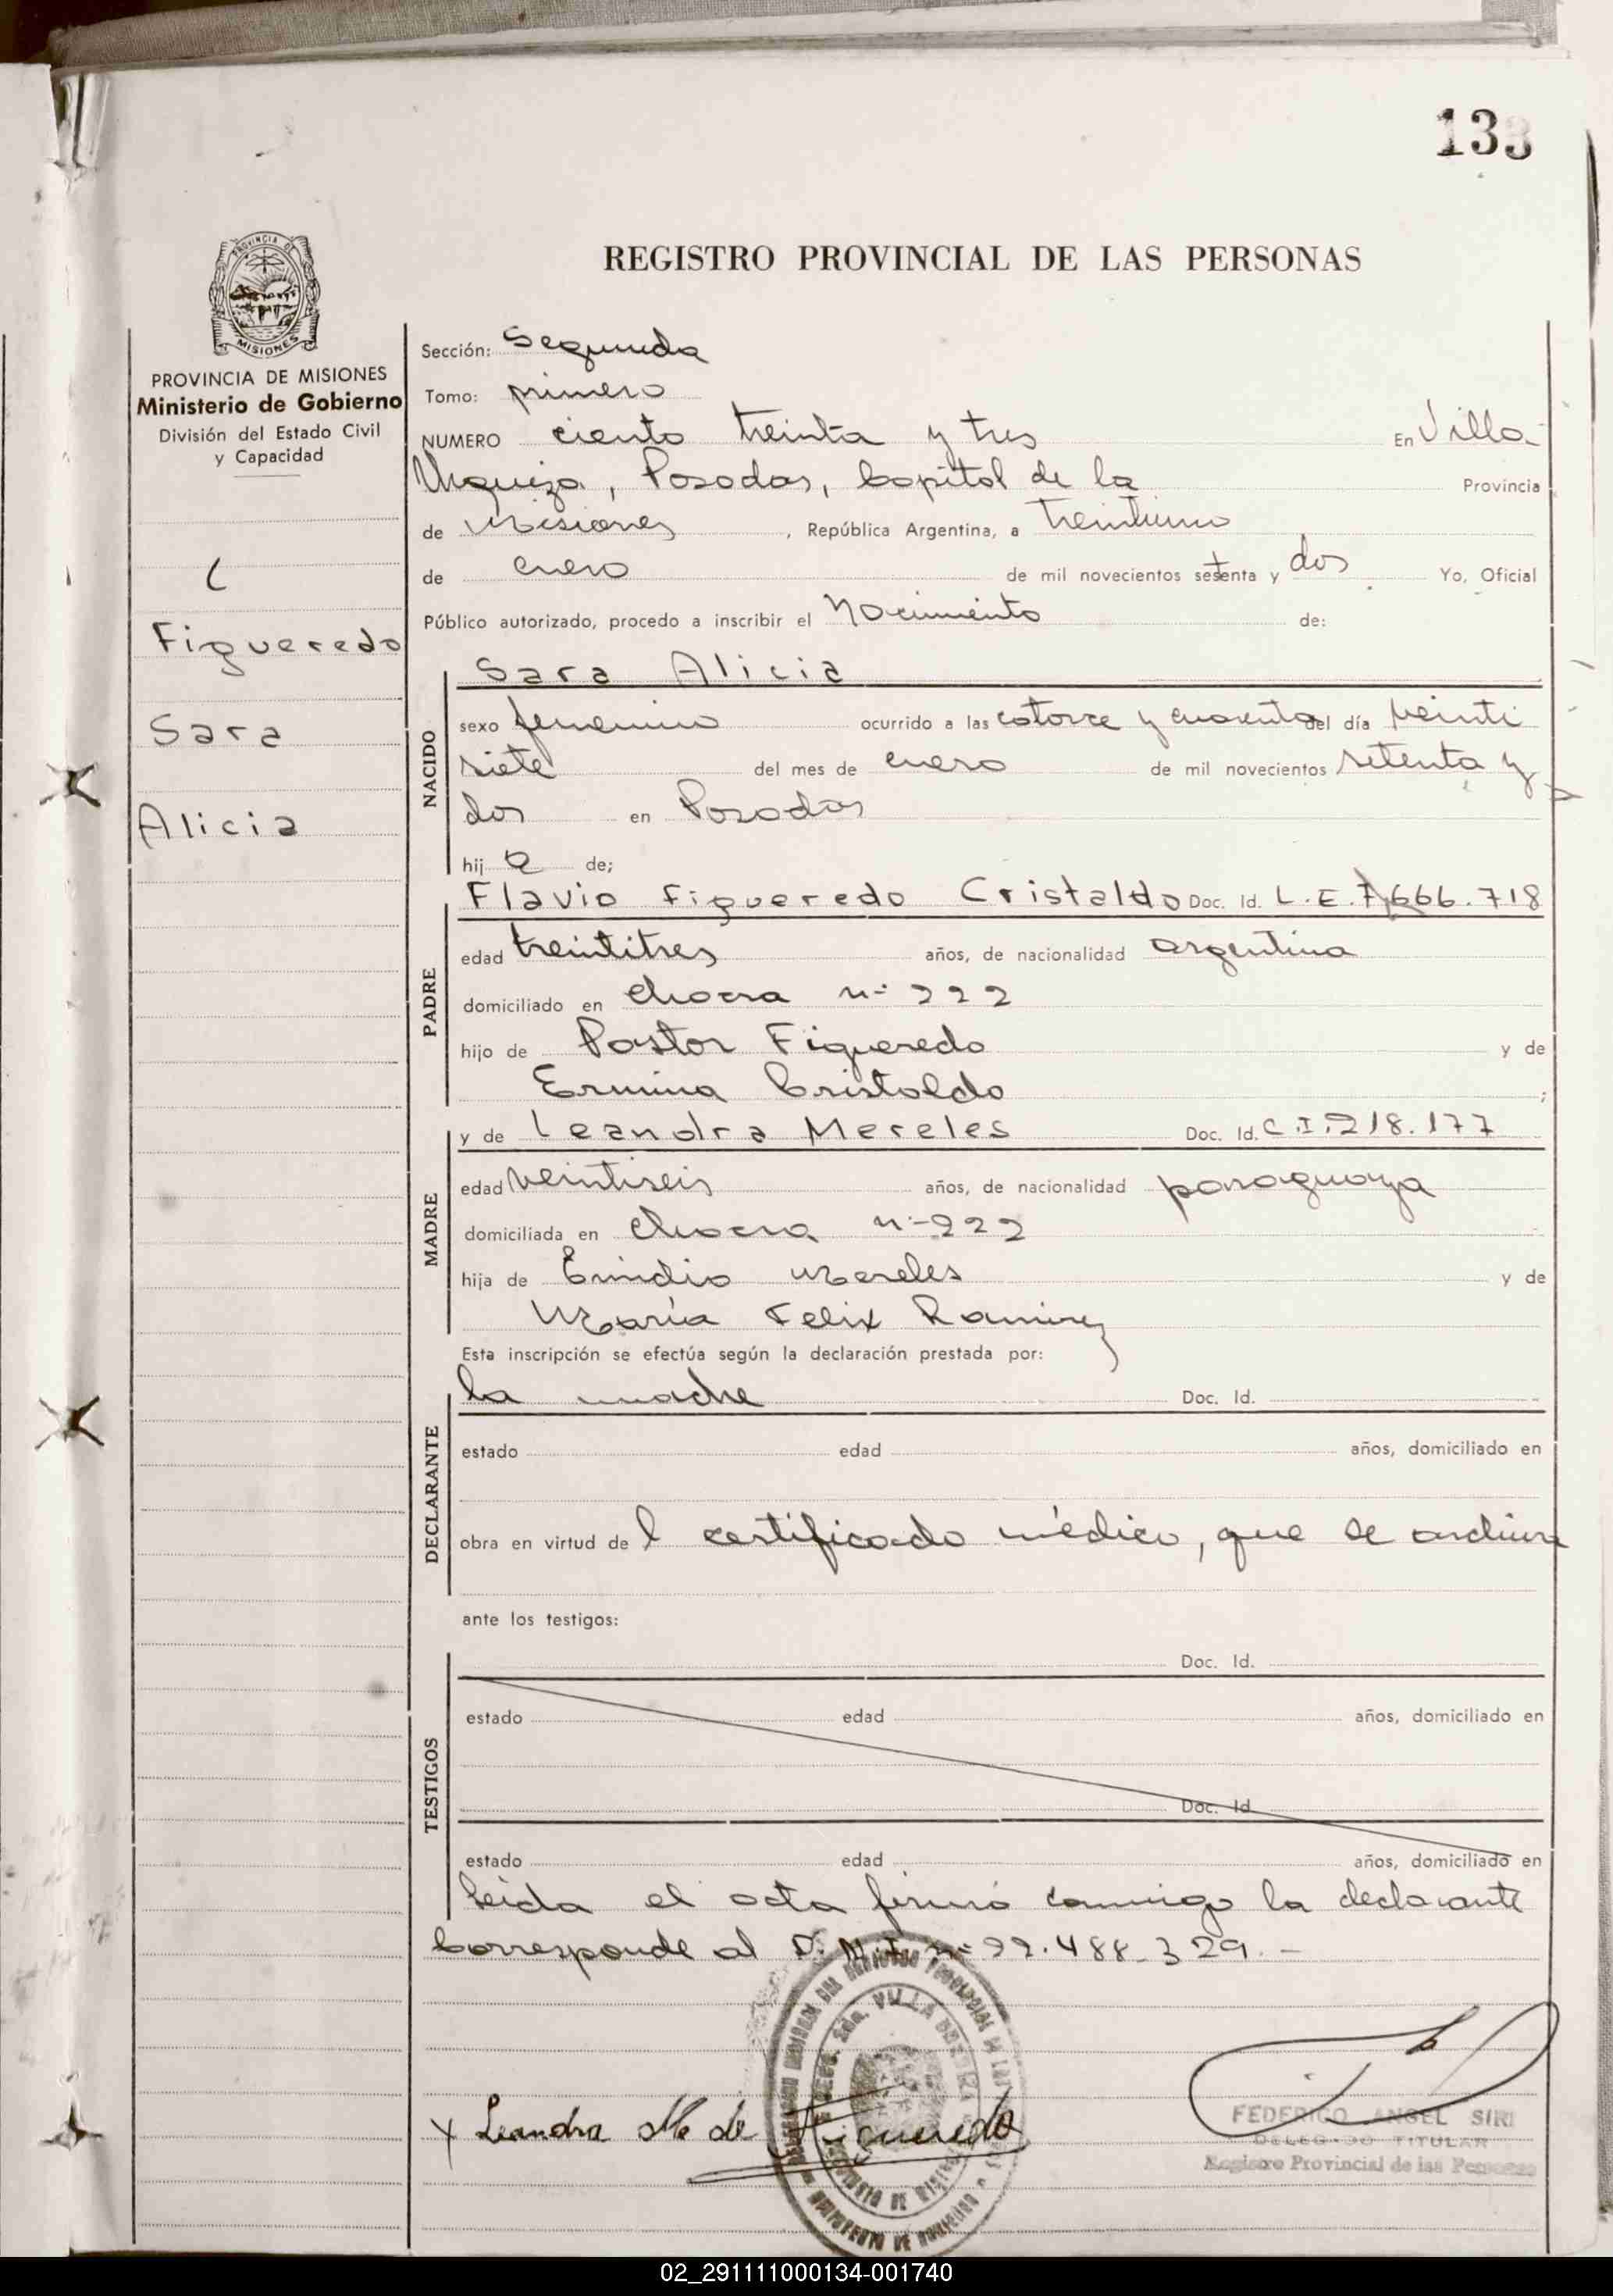 133
PROVINCIA DE
MISIONES
REGISTRO PROVINCIAL DE LAS PERSONAS
PROVINCIA DE MISIONES
Ministerio de Gobierno
División del Estado Civil
y Capacidad
Figueredo
Sara
Alicia
Sección: Segunda
Tomo: primero
NUMERO ciento treinta y tres En Villa
Urquiza, Posadas, Capital de la Provincia
de Misiones, República Argentina, a treintiuno
de enero de mil novecientos setenta y dos Yo, Oficial
Público autorizado, procedo a inscribir el Nacimiento de:
Sara Alicia
NACIDO
sexo femenino ocurrido a las catorce y cuarenta del día veinti
siete del mes de enero de mil novecientos setenta y
dos en Posadas
hija de;
Flavio Figueredo Cristaldo Doc. Id. L.E. 7.666.718
PADRE
edad treintitres años, de nacionalidad argentina
domiciliado en chacra nº 222
hijo de Pastor Figueredo y de
Ermina Cristaldo ;
y de Leandra Mereles Doc. Id. C.I. 218.177
MADRE
edad veintiseis años, de nacionalidad paraguaya
domiciliada en chacra nº 222
hija de Emidio Mereles y de
María Felix Ramirez
Esta inscripción se efectúa según la declaración prestada por:
la madre Doc. Id.
DECLARANTE
estado edad años, domiciliado en
obra en virtud de l certificado médico, que se archiva
ante los testigos:
Doc. Id.
TESTIGOS
estado edad años, domiciliado en
Doc. Id
estado edad años, domiciliado en
Leida el acta firmó conmigo la declarante
Corresponde al D.N.I. nº 22.488.329.-
x Leandra M. de Figueredo
FEDERICO ANGEL SIRI
DELEGADO TITULAR
Registro Provincial de las Personas
02_291111000134-001740